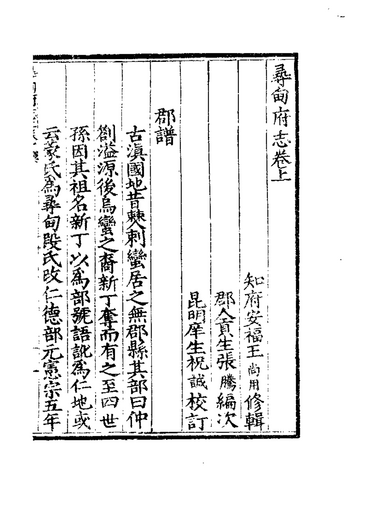 尋甸府志卷上
知府安福王尚用修輯
郡人貢生張騰編次
昆明庠生祝誠校訂
郡譜
古滇國地昔僰剌蠻居之無郡縣其部曰仲
劄溢源後烏蠻之裔新丁奪而有之至四世
孫因其祖名新丁以為部號語訛為仁地或
云蒙氏為尋甸段氏改仁德部元憲宗五年